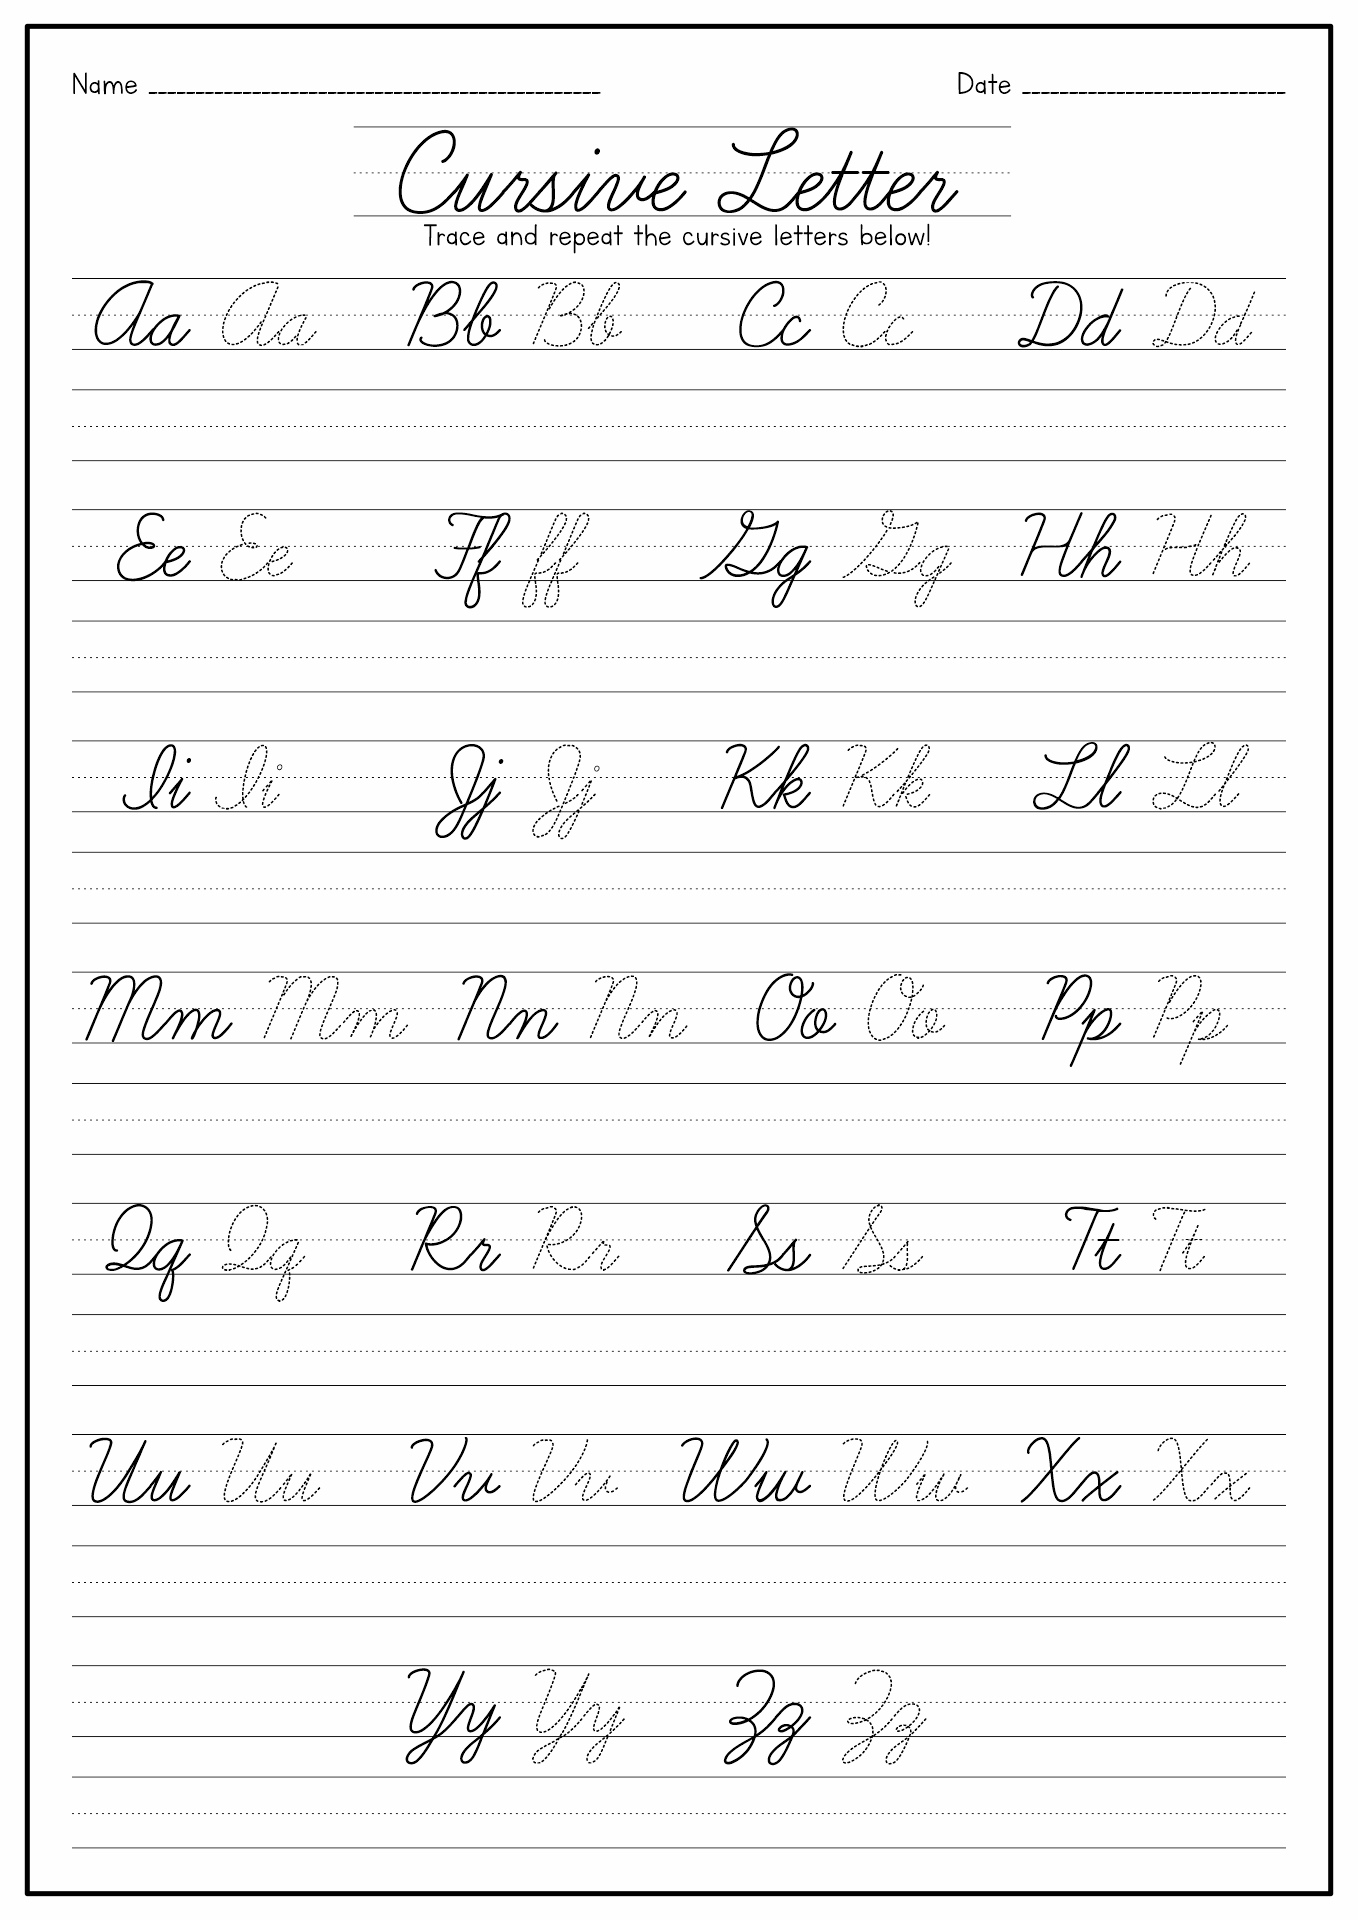 Name Date
Cursive Letter
Trace and repeat the cursive letters below!
Aa Aa Bb Bb Cc Cc Dd Dd
Ee Ee Ff ff Gg Gg Hh Hh
Ii Ii Jj Jj Kk Kk Ll Ll
Mm Mm Nn Nn Oo Oo Pp Pp
Qq Qq Rr Rr Ss Ss Tt Tt
Uu Uu Vv Vv Ww Ww Xx Xx
Yy Yy Zz Zz